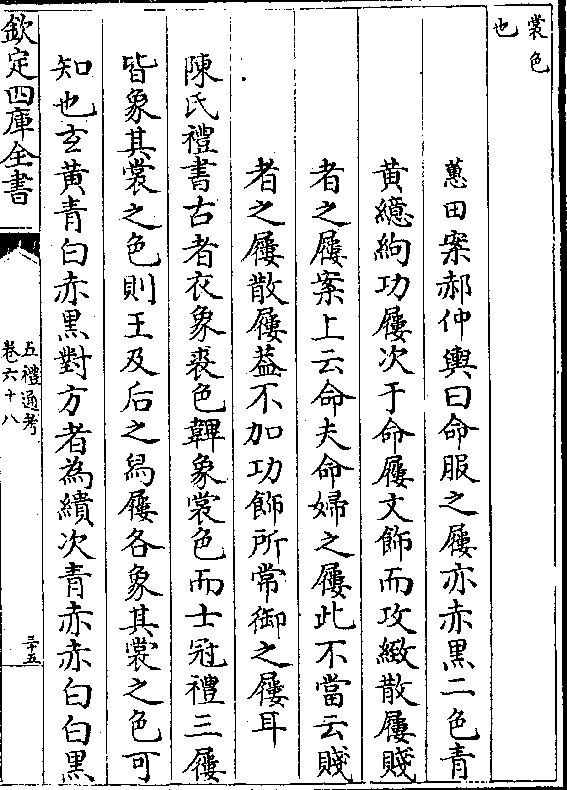 裳色
也
蕙田案郝仲輿曰命服之屨亦赤黑二色青
黄繶絇功屨次于命屨文飾而攻緻散屨賤
者之屨案上云命夫命婦之屨此不當云賤
者之屨散屨葢不加功飾所常御之屨耳
陳氏禮書古者衣象裘色韠象裳色而士冠禮三屨
皆象其裳之色則王及后之舄屨各象其裳之色可
知也玄黄青白赤黑對方者為繢次青赤赤白白黑
欽定四庫全書
五禮通考
卷六十八
三十五